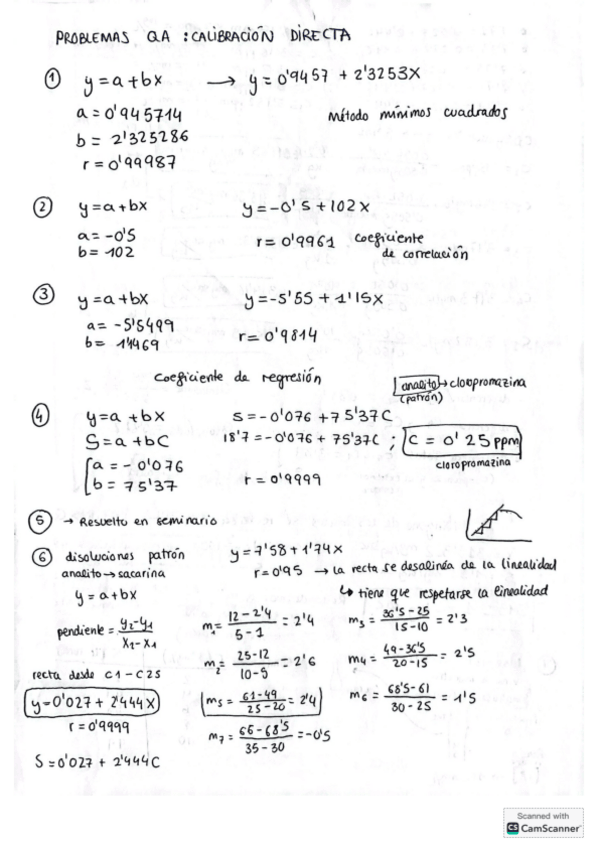 PROBLEMAS QA : CALIBRACIÓN DIRECTA
① y = a + bx → y = 0'9457 + 2'3253X
a = 0'945714 Método mínimos cuadrados
b = 2'325286
r = 0'99987
② y = a + bx y = -0'5 + 102X
a = -0'5 r = 0'9961 coeficiente de correlación
b = 102
③ y = a + bX y = -5'55 + 1'15X
a = -5'5499 r = 0'9814
b = 1'1469
Coeficiente de regresión
analito → cloropromazina
(patrón)
④ y = a + bX S = -0'076 + 75'37C
S = a + bC 18'7 = -0'076 + 75'37C ; C = 0'25 ppm
cloropromazina
a = -0'076
b = 75'37 r = 0'9999
⑤ → Resuelto en seminario
⑥ disoluciones patrón y = 7'58 + 1'74X
analito → sacarina r = 0'95 → la recta se desalinea de la linealidad
y = a + bx ↳ tiene que respetarse la linealidad
pendiente = y2-y1 / x2-x1
m1 = 12-2'4 / 5-1 = 2'4 m3 = 36'5-25 / 15-10 = 2'3
m2 = 25-12 / 10-5 = 2'6 m4 = 49-36'5 / 20-15 = 2'5
recta desde C1-C25
y = 0'027 + 2'444X m5 = 61-49 / 25-20 = 2'4 m6 = 68'5-61 / 30-25 = 1'5
r = 0'9999 m7 = 66-68'5 / 35-30 = -0'5
S = 0'027 + 2'444C
Scanned with
CS CamScanner